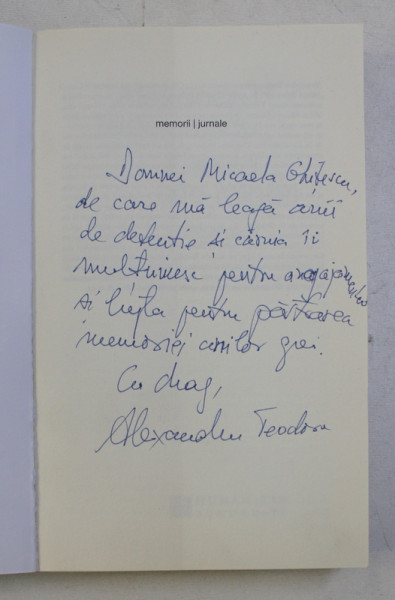 memorii | jurnale
Domnei Micaela Ghițescu,
de care mă leagă anii
de detenție și căreia îi
mulțumesc pentru angajamentul
și lupta pentru păstrarea
memoriei anilor grei.
Cu drag,
Alexandru Teodoru